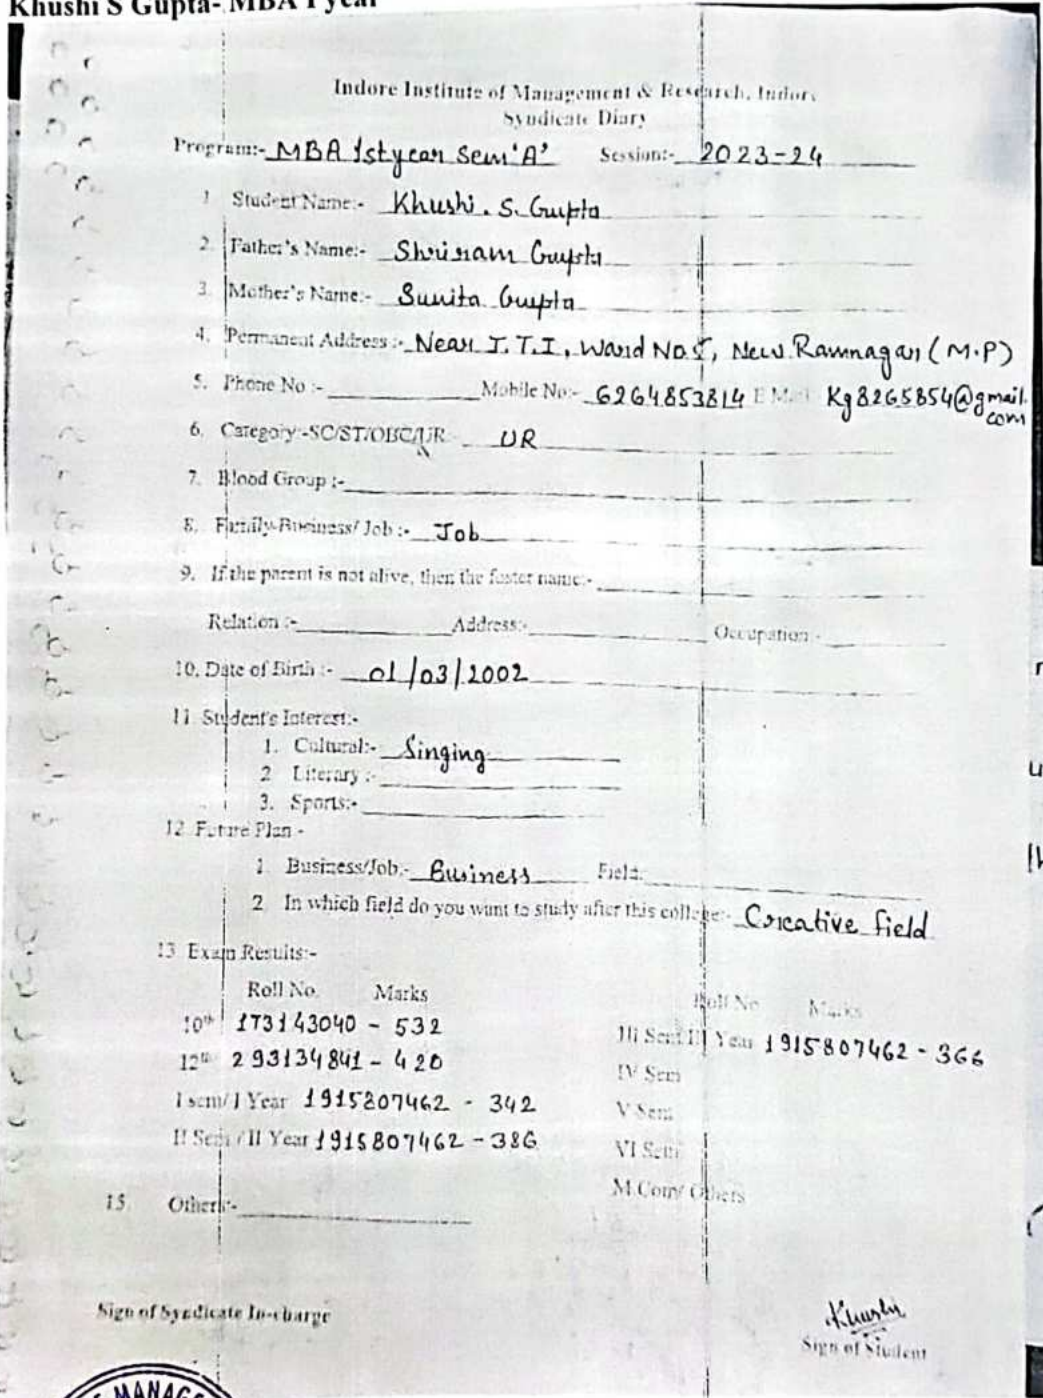 Khushi S Gupta- MBA I year
Indore Institute of Management & Research, Indore
Syndicate Diary
Program:- MBA 1st year Sem 'A' Session:- 2023-24
1 Student Name:- Khushi. S. Gupta
2. Father's Name:- Shriram Gupta
3. Mother's Name:- Sunita Gupta
4. Permanent Address :- Near I.T.I, Ward No.5, New Ramnagar (M.P)
5. Phone No :- Mobile No:- 6264853814 E Mail Kg8265854@gmail.com
6. Category:-SC/ST/OBC/UR:- UR
7. Blood Group :-
8. Family-Business/ Job :- Job
9. If the parent is not alive, then the foster name:-
Relation :- Address:- Occupation:-
10. Date of Birth :- 01/03/2002
11 Student's Interest:-
1. Cultural:- Singing
2 Literary :-
3. Sports:-
12 Future Plan -
1. Business/Job:- Business Field:
2 In which field do you want to study after this college:- Creative field
13 Exam Results:-
Roll No. Marks Roll No Marks
10th 173143040 - 532
III Sem/III Year 1915807462 - 366
12th 293134841 - 420
IV Sem
I sem/I Year 1915807462 - 342
V Sem
II Sem / II Year 1915807462 - 386
VI Sem
M.Com/ Others
15. Others:-
Sign of Syndicate In-charge
Khushi
Sign of Student
MANAG